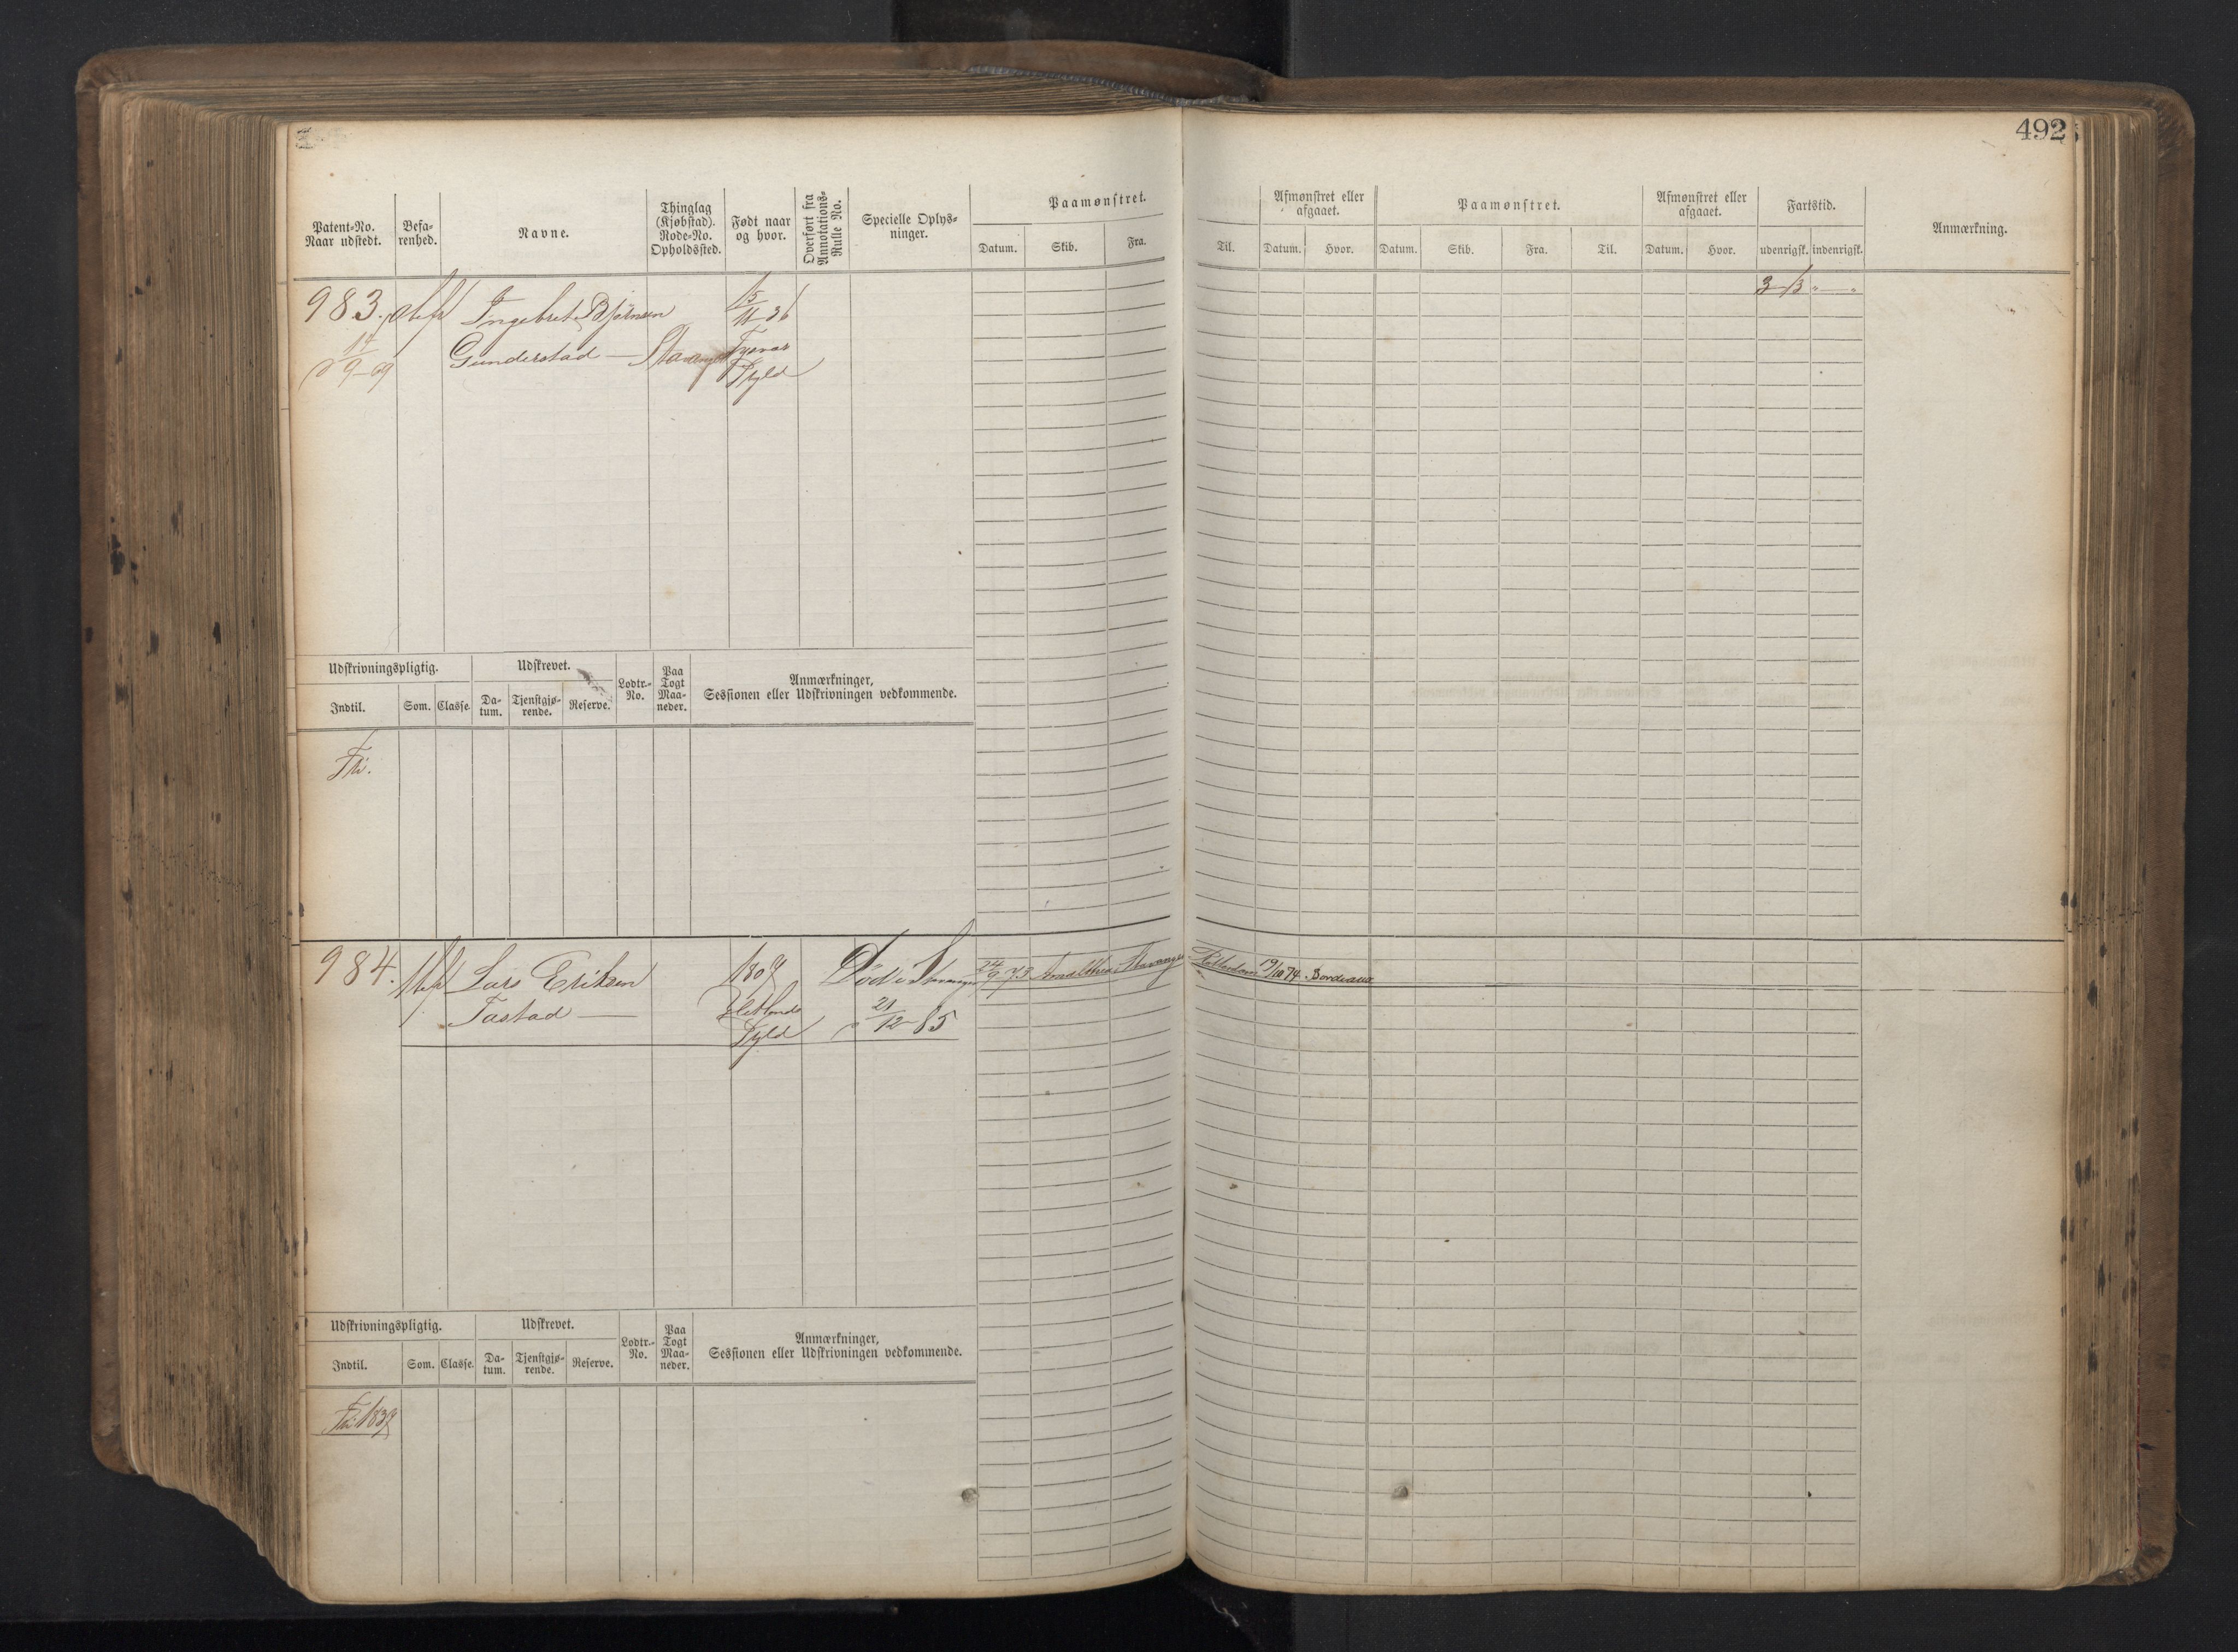 492
Patent=No. Naar udstedt.
Befa=renhed.
Navne.
Thinglag (Kjøbstad). Rode=No. Opholdssted.
Født naar og hvor.
Overført fra Annotations=Rulle No.
Specielle Oplys=ninger.
Paamønstret.
Datum. Skib. Fra. Til.
Afmønstret eller afgaaet.
Datum. Hvor.
Paamønstret.
Datum. Skib. Fra. Til.
Afmønstret eller afgaaet.
Datum. Hvor.
Fartstid.
udenrigsk. indenrigsk.
Anmærkning.
983. Ingebret Bjørnsen 15/11 36
14/9-69 Gunderstad — Stavanger Tysvær
Fyld
Udskrivningspligtig. Udskrevet. Lodtr.=No. Paa Togt Maa=neder. Anmærkninger, Sessionen eller Udskrivningen vedkommende.
Indtil. Som. Classe. Da=tum. Tjenstgjø=rende. Reserve.
984. Lars Eriksen 1809 Død i Stavanger 24/9 73 Stavanger Rotterdam 19/10 74. Bordeaux
Tastad — Hetlands 21/12-85
Fyld
Udskrivningspligtig. Udskrevet. Lodtr.=No. Paa Togt Maa=neder. Anmærkninger, Sessionen eller Udskrivningen vedkommende.
Indtil. Som. Classe. Da=tum. Tjenstgjø=rende. Reserve.